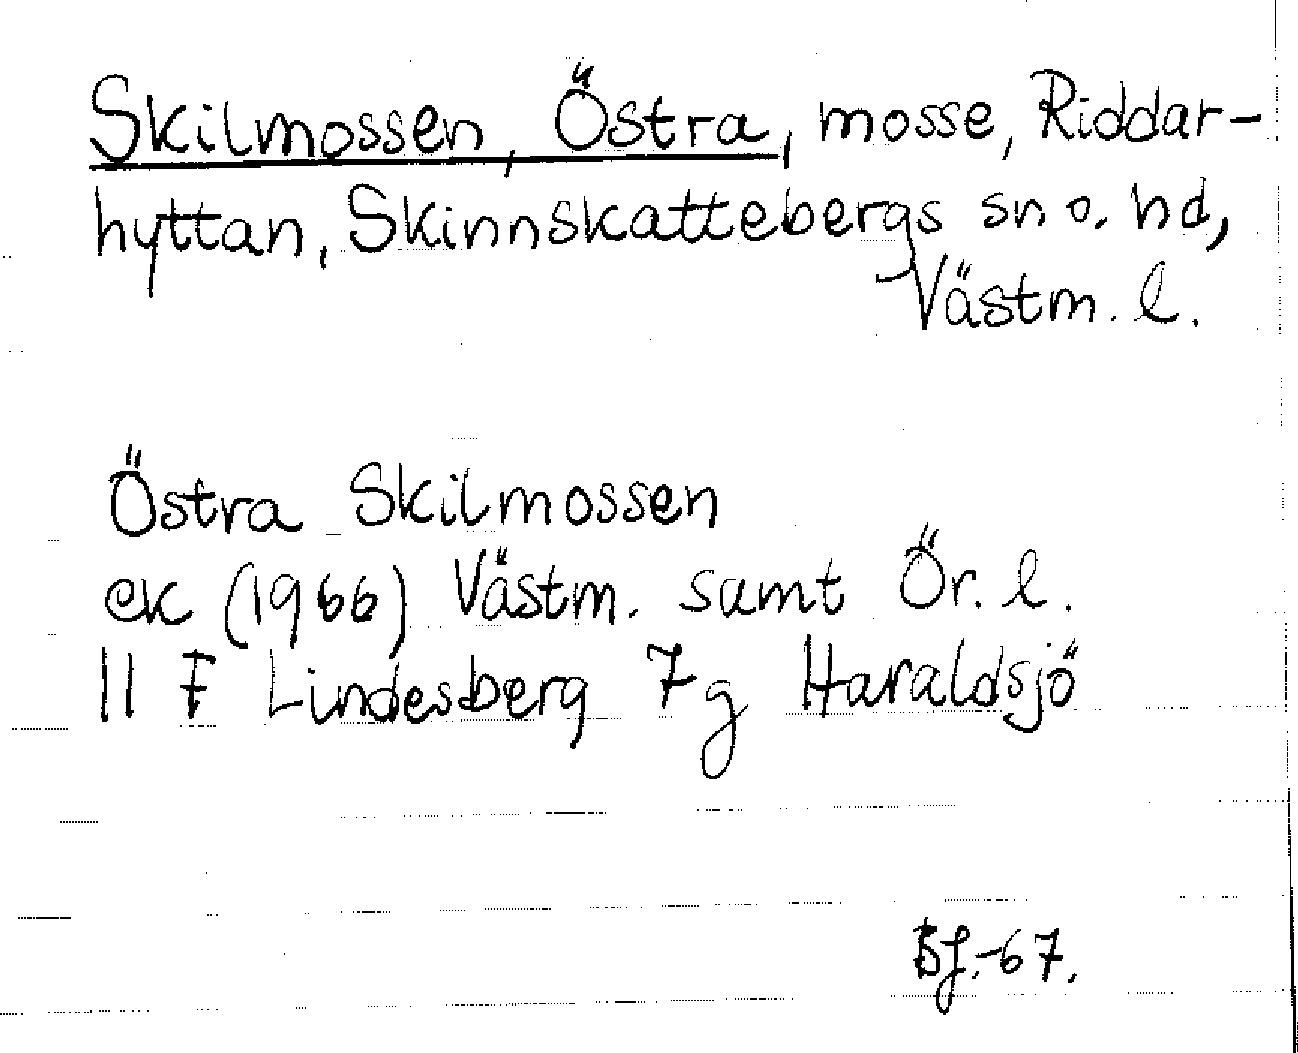 Skilmossen, Östra, mosse, Riddar-
hyttan, Skinnskattebergs sn o. hd,
Västm. l.
Östra Skilmossen
ek (1966) Västm. samt Ör. l.
11 F Lindesberg 7g Haraldsjö
Bj.-67.